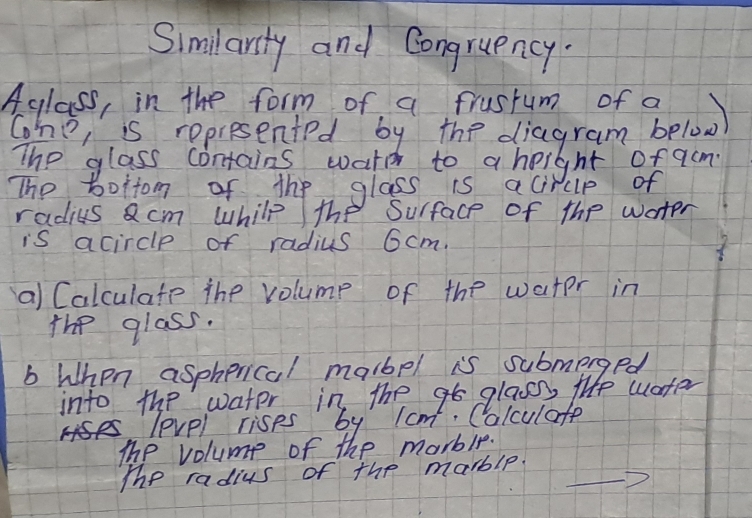 Similarity and Congruency.
A glass, in the form of a frustum of a
Cone, is represented by the diagram below
The glass contains water to a height of 9cm.
The bottom of the glass is a circle of
radius 2cm while the surface of the water
is a circle of radius 6cm.
a) Calculate the volume of the water in
the glass.
b When aspherical marbel is submerged
into the water in the glass, the water
level rises by 1cm. Calculate
the volume of the marble.
The radius of the marble.